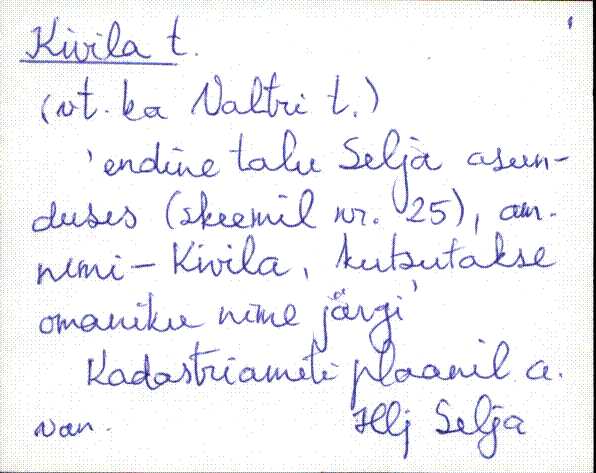 Kivila t.
(vt. ka Valtri t.)
'endine talu Selja asun-
duses (skeemil nr. 25), am.
nimi - Kivila, kutsutakse
omaniku nime järgi'
Kadastriameti plaanil a.
van. Hlj Selja